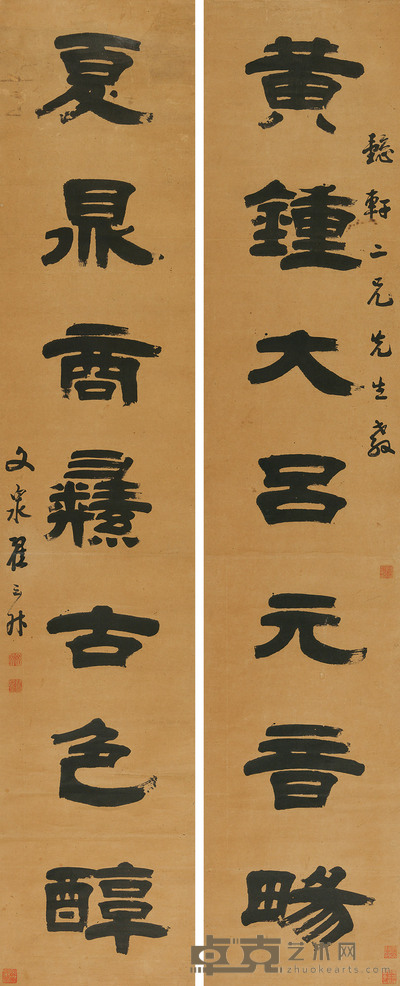 懿軒二兄先生教
黄鍾大呂元音畼
夏鼎商彝古色醇
文泉翟云升
卓克艺术网
zhuokearts.com